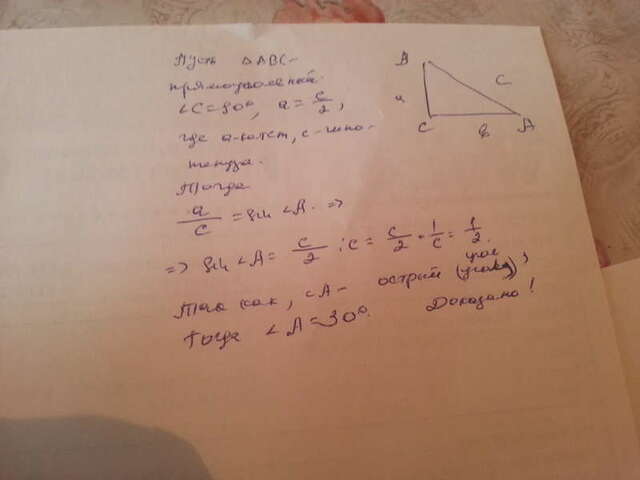 Пусть △ABC-
прямоуголеный
∠C=90°, a=c/2,
где a-катет, c-гипо-
тенуза.
Тогда
a/c = sin ∠A. =>
=> sin ∠A = c/2 : c = c/2 * 1/c = 1/2.
Так как, ∠A- острый (угол),
Тогда ∠A=30°. Доказано!
B
a
C
c
в
A